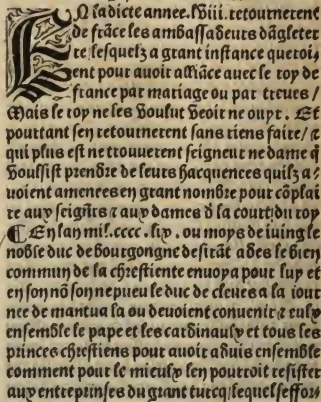 EN ladicte annee.lviii. retournerent
de frãce les ambassadeurs dãgleter
re lesquelz a grant instance queroi⸗
ent pour auoir affiãce auec le roy de
france par mariage ou par treues /
Mais le roy ne les voulut veoir ne ouyr. Et
pourtant sen retournerent sans riens faire/ ⁊
qui plus est ne trouuerent seigneur ne dame q̃
voulsist prendre de leurs hacquences quilz a⸗
uoient amenees en grant nombre pour cõplai
re aux seigñrs ⁊ aux dames d̃ la court du roy
¶ En lan mil.cccc. lix. ou moys de iuing le
noble duc de bourgongne desirãt ades le bien
commun de la chrestiente enuoya pour luy et
en son nõ son nepueu le duc de cleues a la iour
nee de mantua la ou deuoient conuenir ⁊ eulx
ensemble le pape et les cardinaulx et tous les
princes chrestiens pour auoir aduis ensemble
comment pour le mieulx len pourroit resister
aux entreprinses du grant turcq/lequel seffor⸗